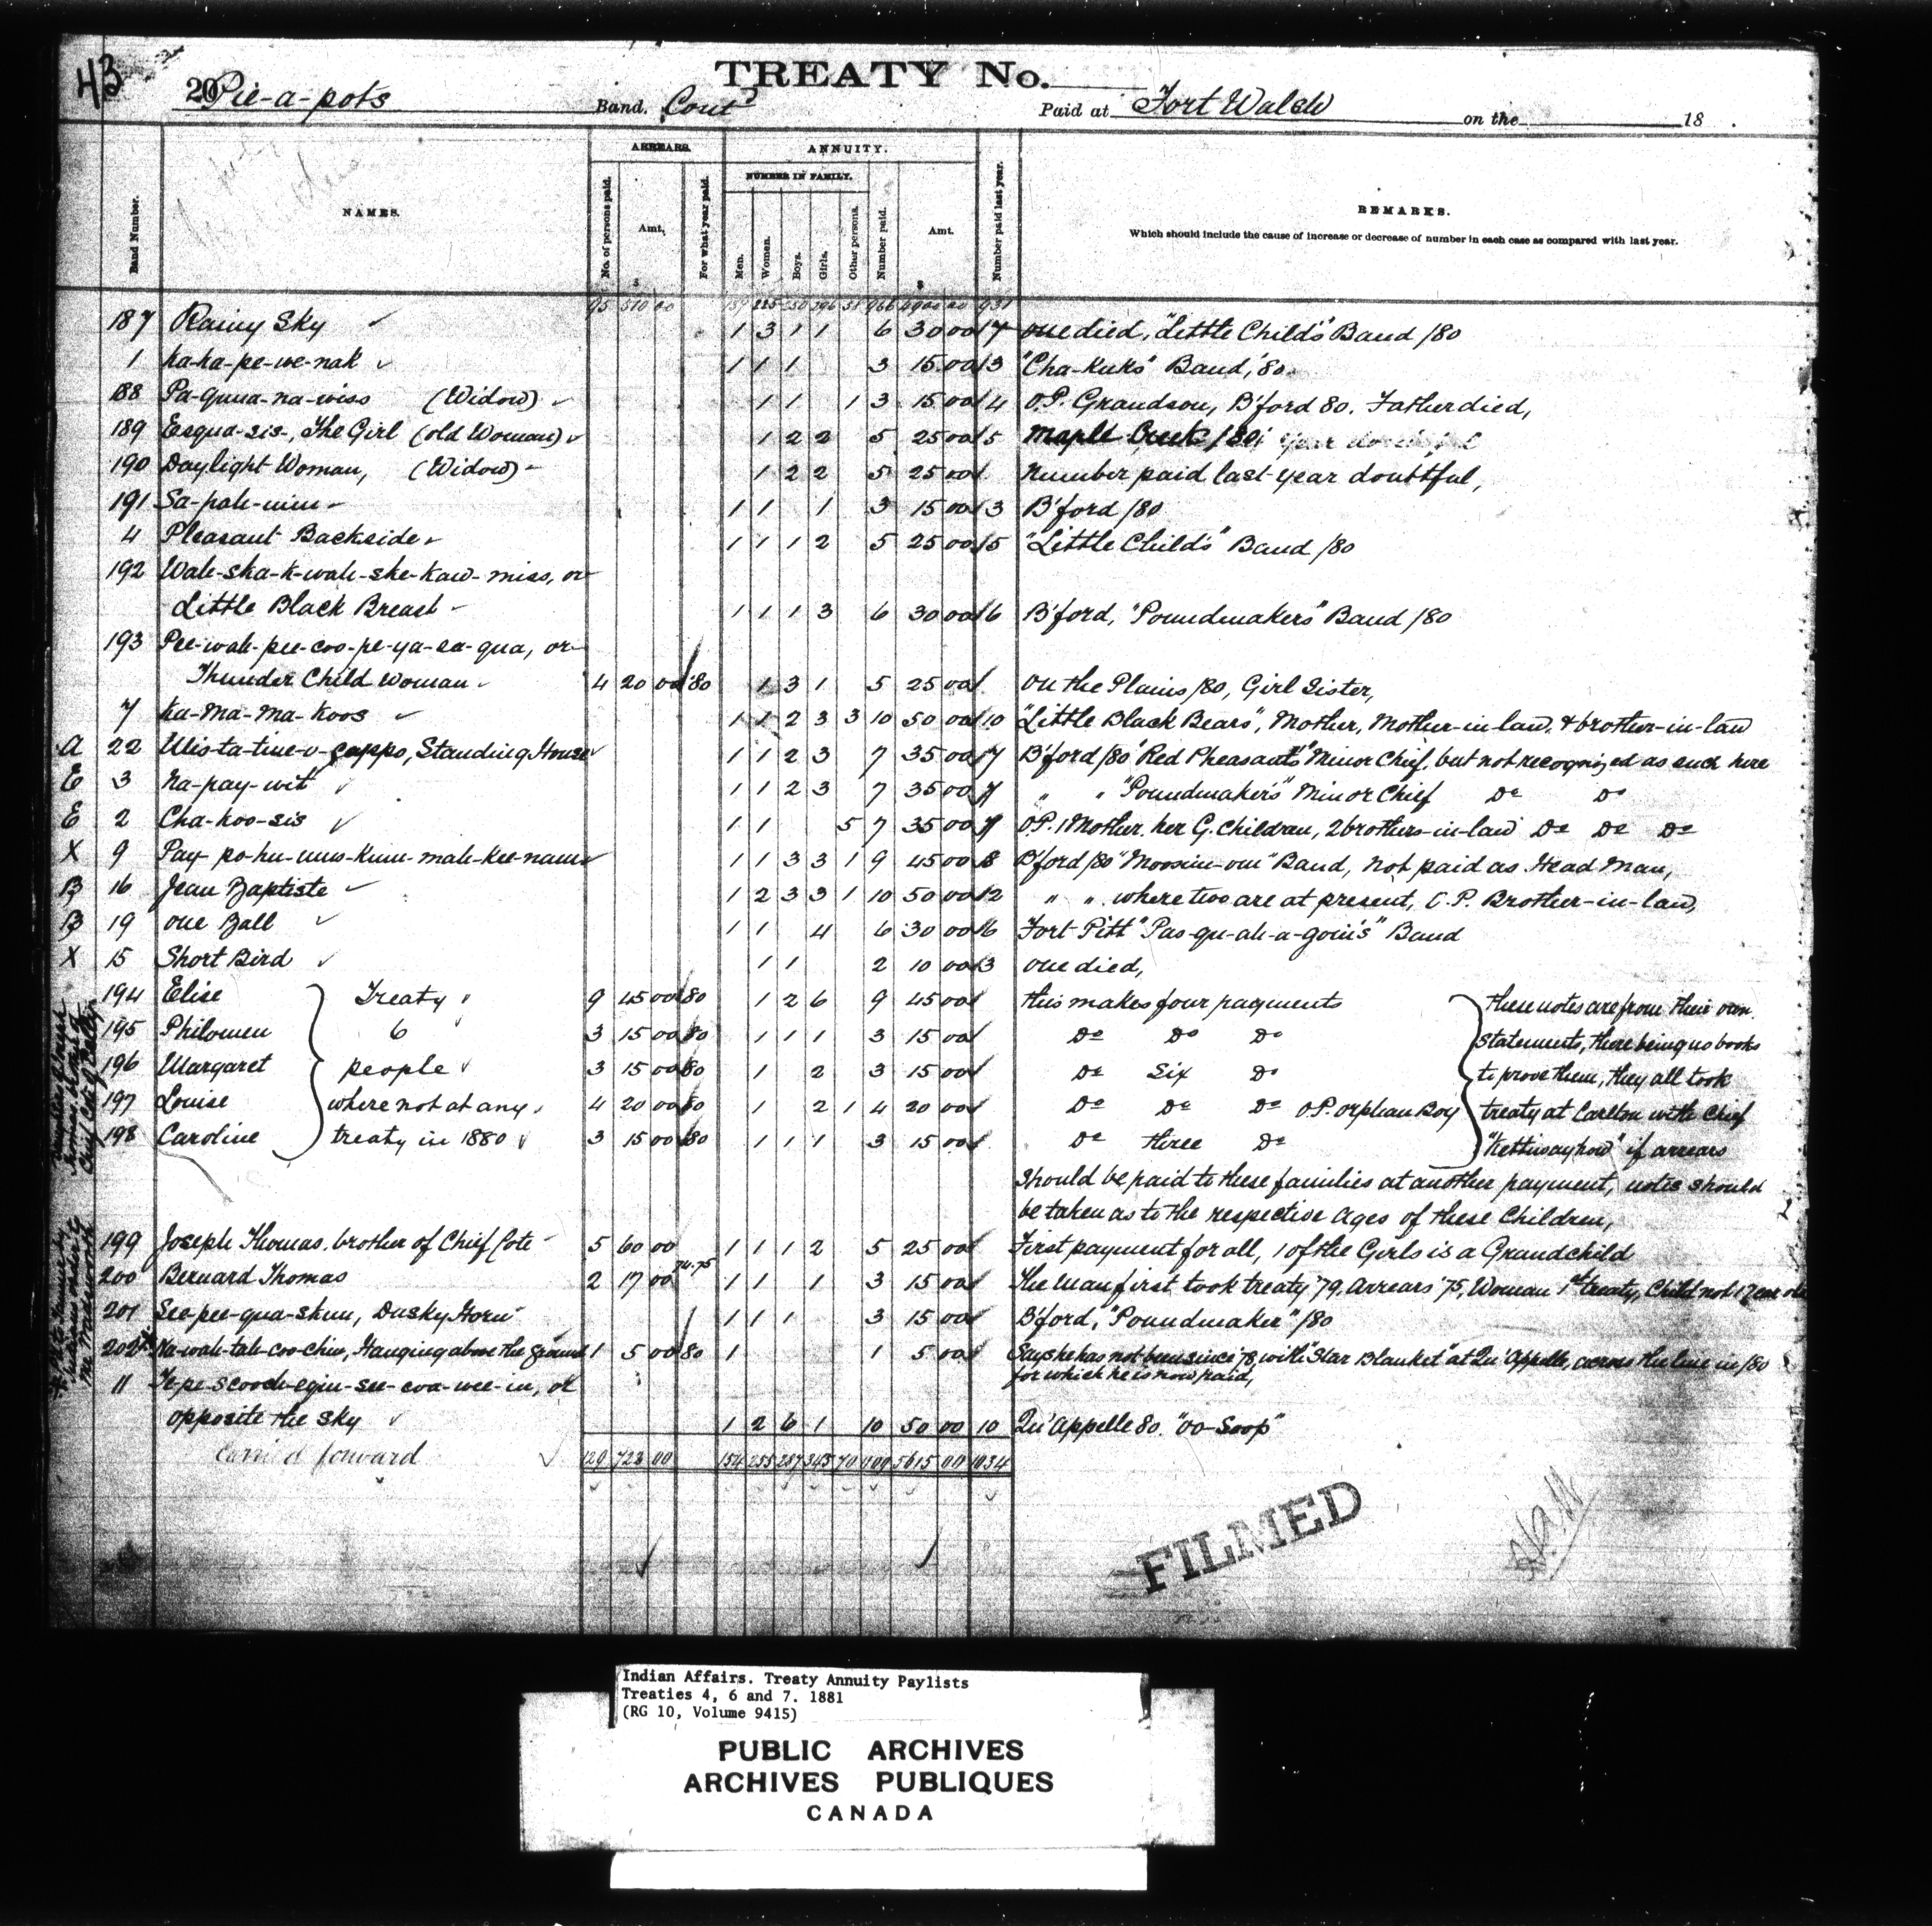 43
TREATY No.
20 Pie-a-pots Band. Cont'd Paid at Fort Walsh on the 18 .
Band Number.
NAMES.
ARREARS.
No. of persons paid.
Amt.
For what year paid.
ANNUITY.
NUMBER IN FAMILY.
Men.
Women.
Boys.
Girls.
Other persons.
Number paid.
Amt.
Number paid last year.
REMARKS.
Which should include the cause of increase or decrease of number in each case as compared with last year.
$ $
95 510 00 966 931
187 Rainy Sky 1 3 1 1 6 30 00 7 one died, "Little Child's" Band /80
1 Ka-ka-pe-we-nak 1 1 1 3 15 00 3 "Cha-Kuks" Band, '80.
188 Pa-quua-na-wiss (Widow) 1 1 1 3 15 00 4 O.P. Grandson, B'ford 80. Father died,
189 Esqua-sis-, The Girl (old Woman) 1 2 2 5 25 00 5 Maple Creek /80
190 Daylight Woman, (Widow) 1 2 2 5 25 00 Number paid last year doubtful,
191 Sa-pah-num 1 1 1 3 15 00 3 B'ford /80
4 Pleasant Backside 1 1 1 2 5 25 00 5 "Little Child's" Band /80
192 Wah-ska-k-wah-ske-kaw-miss, or
Little Black Breast 1 1 1 3 6 30 00 6 B'ford, "Poundmakers" Band /80
193 Pee-wah-pee-coo-pe-ya-sa-qua, or
Thunder Child Woman 4 20 00 '80 1 3 1 5 25 00 on the Plains /80, Girl Sister,
7 Ku-Ma-Ma-Koos 1 1 2 3 3 10 50 00 10 "Little Black Bears", Mother, Mother-in-law, & brother-in-law
A 22 Wis-ta-tine-o-gappo, Standing House 1 1 2 3 7 35 00 7 B'ford /80 "Red Pheasants" Minor Chief, but not recognized as such here
E 3 Na-pay-wit 1 1 2 3 7 35 00 7 " " "Poundmaker's" Minor Chief Do Do
E 2 Cha-koo-sis 1 1 5 7 35 00 7 O.P. 1 Mother, her G. Children, 2 brothers-in-law Do Do Do
X 9 Pay-po-hu-mus-kum-mah-kee-nam 1 1 3 3 1 9 45 00 8 B'ford /80 "Moosum-ow" Band, not paid as Head Man,
B 16 Jean Baptiste 1 2 3 3 1 10 50 00 12 " " where two are at present, O.P. Brother-in-law,
B 19 One Ball 1 1 4 6 30 00 6 Fort Pitt "Pas-qu-ah-a-goin's" Band
X 15 Short Bird 1 1 2 10 00 3 one died,
194 Elise Treaty 9 45 00 80 1 2 6 9 45 00 this makes four payments These notes are from their own
195 Philomen 6 3 15 00 80 1 1 1 3 15 00 Do Do Do statements, there being no books
196 Margaret people 3 15 00 80 1 2 3 15 00 Do Six Do to prove them, they all took
197 Louise where not at any 4 20 00 80 1 2 1 4 20 00 Do Do Do O.P. Orphan Boy treaty at Carlton with Chief
198 Caroline treaty in 1880 3 15 00 80 1 1 1 3 15 00 Do three Do "Kettusayhow" if arrears
should be paid to these families at another payment, notes should
be taken as to the respective ages of these Children,
199 Joseph Thomas, brother of Chief Cote 5 60 00 1 1 1 2 5 25 00 First payment for all, 1 of the Girls is a Grandchild
200 Bernard Thomas 2 17 00 74.75 1 1 1 3 15 00 The Man first took treaty '79, Arrears '75, Woman 1st treaty, Child not 1 year old
201 See-pee-qua-skun, Dusky Horn 1 1 1 3 15 00 B'ford, "Poundmaker" /80
202 Na-wah-tah-coo-chin, Hanging above the ground 1 5 00 80 1 1 5 00 Says he has not been since '78, with "Star Blanket" at Qu'Appelle, across the line in /80
for which he is now paid,
11 Te-pe-scooch-egin-see-coa-wee-in, or
opposite the sky 1 2 6 1 10 50 00 10 Qu'Appelle 80. "OO-Soop"
Carried forward 129 722 00 154 255 287 343 70 1109 5615 00 1034
FILMED
Indian Affairs. Treaty Annuity Paylists
Treaties 4, 6 and 7. 1881
(RG 10, Volume 9415)
PUBLIC ARCHIVES
ARCHIVES PUBLIQUES
CANADA